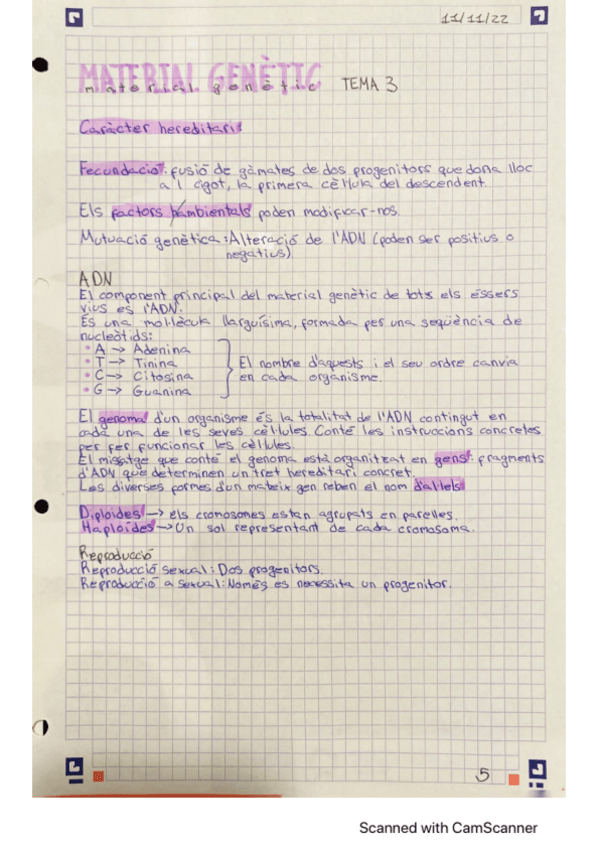 11/11/22
MATERIAL GENÈTIC TEMA 3
material genètic
Caràcter hereditaris
Fecundació: fusió de gàmates de dos progenitors que dona lloc
a l cigot, la primera cèl·lula del descendent.
Els factors ambientals poden modificar-nos.
Mutuació genètica: Alteració de l'ADN (poden ser positius o
negatius)
ADN
El component principal del material genètic de tots els éssers
vius es l'ADN.
Es una mol·lècula llarguísima, formada per una seqüència de
nucleòtids:
• A → Adenina
• T → Tinina
• C → Citosina
• G → Guanina
El nombre d'aquests i el seu ordre canvia
en cada organisme.
El genoma d'un organisme és la totalitat de l'ADN contingut en
cada una de les seves cèl·lules. Conté les instruccions concretes
per fer funcionar les cèl·lules.
El missatge que conté el genoma està organitzat en gens: fragments
d'ADN que determinen un tret hereditari concret.
Les diverses formes d'un mateix gen reben el nom d'al·lels
Diploides → els cromosones estan agrupats en parelles.
Haploides → Un sol representant de cada cromosoma.
Reproducció
Reproducció sexual: Dos progenitors.
Reproducció asexual: Només es necessita un progenitor.
5
Scanned with CamScanner